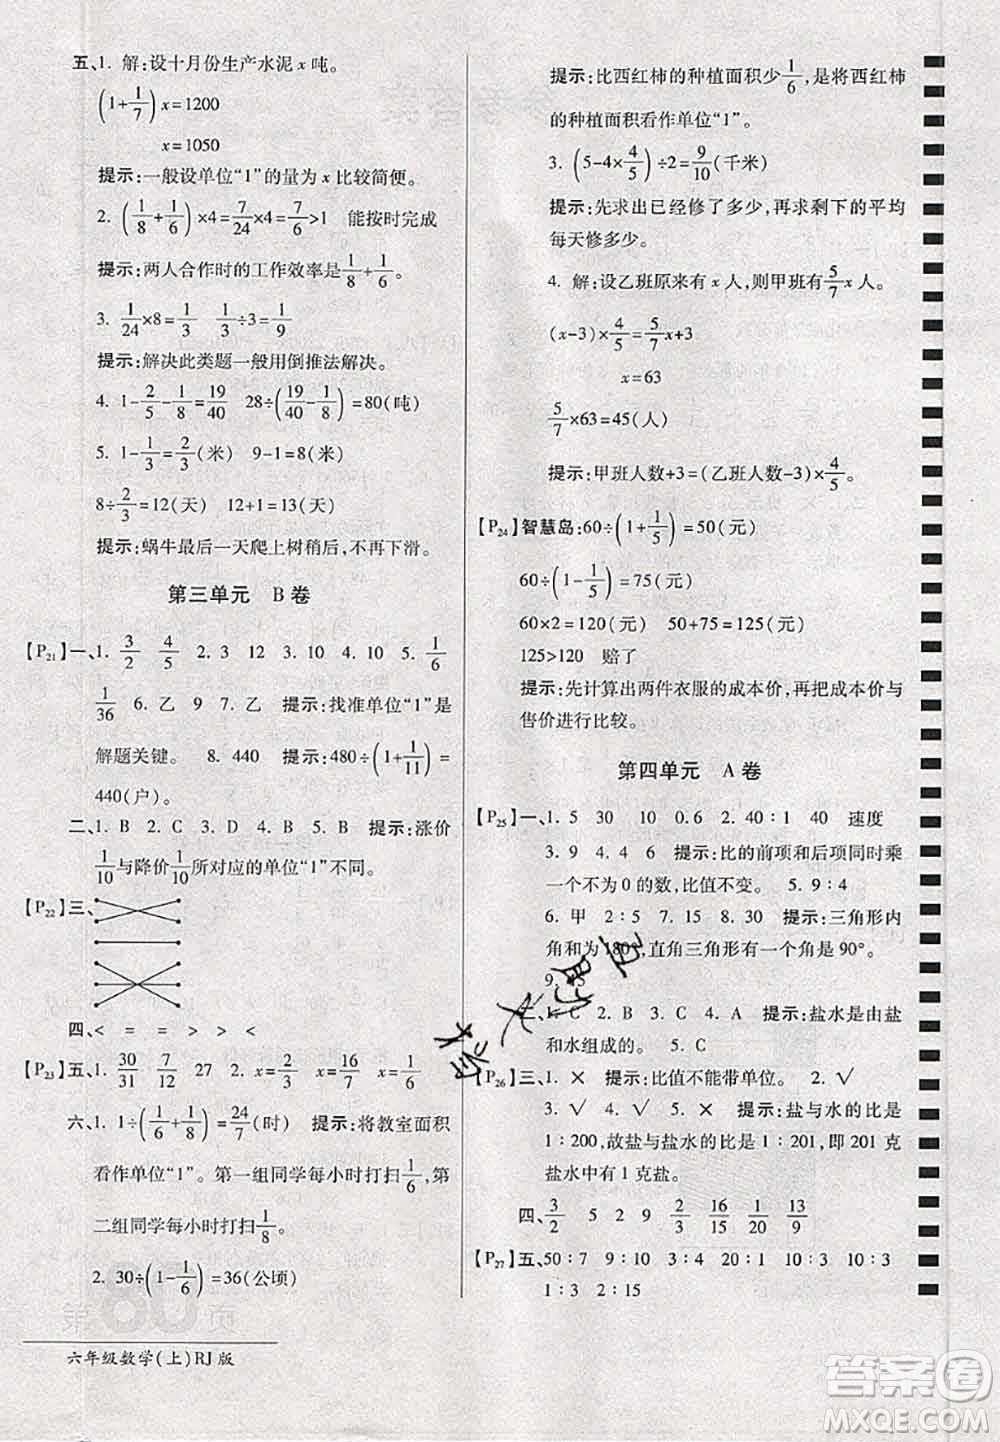 五、1. 解:设十月份生产水泥 x 吨。
(1+1/7)x=1200
x=1050
提示:一般设单位“1”的量为 x 比较简便。
2. (1/8+1/6)×4=7/24×4=7/6>1 能按时完成
提示:两人合作时的工作效率是1/8+1/6。
3. 1/24×8=1/3 1/3÷3=1/9
提示:解决此类题一般用倒推法解决。
4. 1-2/5-1/8=19/40 28÷(19/40-1/8)=80(吨)
5. 1-1/3=2/3(米) 9-1=8(米)
8÷2/3=12(天) 12+1=13(天)
提示:蜗牛最后一天爬上树稍后,不再下滑。
第三单元 B 卷
【P21】一、1. 3/2 4/5 2. 3 12 3. 10 4. 10 5. 1/6
1/36 6. 乙 9 7. 乙 提示:找准单位“1”是
解题关键。 8. 440 提示:480÷(1+1/11)=
440(户)。
二、1. B 2. C 3. D 4. B 提示:涨价
1/10与降价1/10所对应的单位“1”不同。
【P22】三、
四、< = = > > <
【P23】五、1. 30/31 7/12 27 2. x=1/2 x=16/7 x=1/6
六、1. 1÷(1/6+1/8)=24/7(时) 提示:将教室面积
看作单位“1”。第一组同学每小时打扫1/6,第
二组同学每小时打扫1/8。
2. 30÷(1-1/6)=36(公顷)
第80页
六年级数学(上)RJ版
提示:比西红柿的种植面积少1/6,是将西红柿
的种植面积看作单位“1”。
3. (5-4×4/5)÷2=9/10(千米)
提示:先求出已经修了多少,再求剩下的平均
每天修多少。
4. 解:设乙班原来有 x 人,则甲班有5/7x 人。
(x-3)×4/5=5/7x+3
x=63
5/7×63=45(人)
提示:甲班人数+3=(乙班人数-3)×4/5。
【P24】智慧岛:60÷(1+1/5)=50(元)
60÷(1-1/5)=75(元)
60×2=120(元) 50+75=125(元)
125>120 赔了
提示:先计算出两件衣服的成本价,再把成本价与
售价进行比较。
第四单元 A 卷
【P25】一、1. 5 30 10 0.6 2. 40∶1 40 速度
3. 9 4. 4 6 提示:比的前项和后项同时乘
一个不为 0 的数,比值不变。 5. 9∶4
6. 甲 2∶5 7. 15 8. 30 提示:三角形内
角和为 180°,直角三角形有一个角是 90°。
9.
二、1. C 2. B 3. C 4. A 提示:盐水是由盐
和水组成的。 5. C
【P26】三、1. × 提示:比值不能带单位。 2. √
3. √ 4. √ 5. × 提示:盐与水的比是
1∶200,故盐与盐水的比是 1∶201,即 201 克
盐水中有 1 克盐。
四、3/2 5 2 9 2/3 16/15 1/20 13/9
【P27】五、50∶7 9∶10 3∶4 20∶1 10∶3 1∶3
1∶3 2∶15
答案圈
MXQE.COM